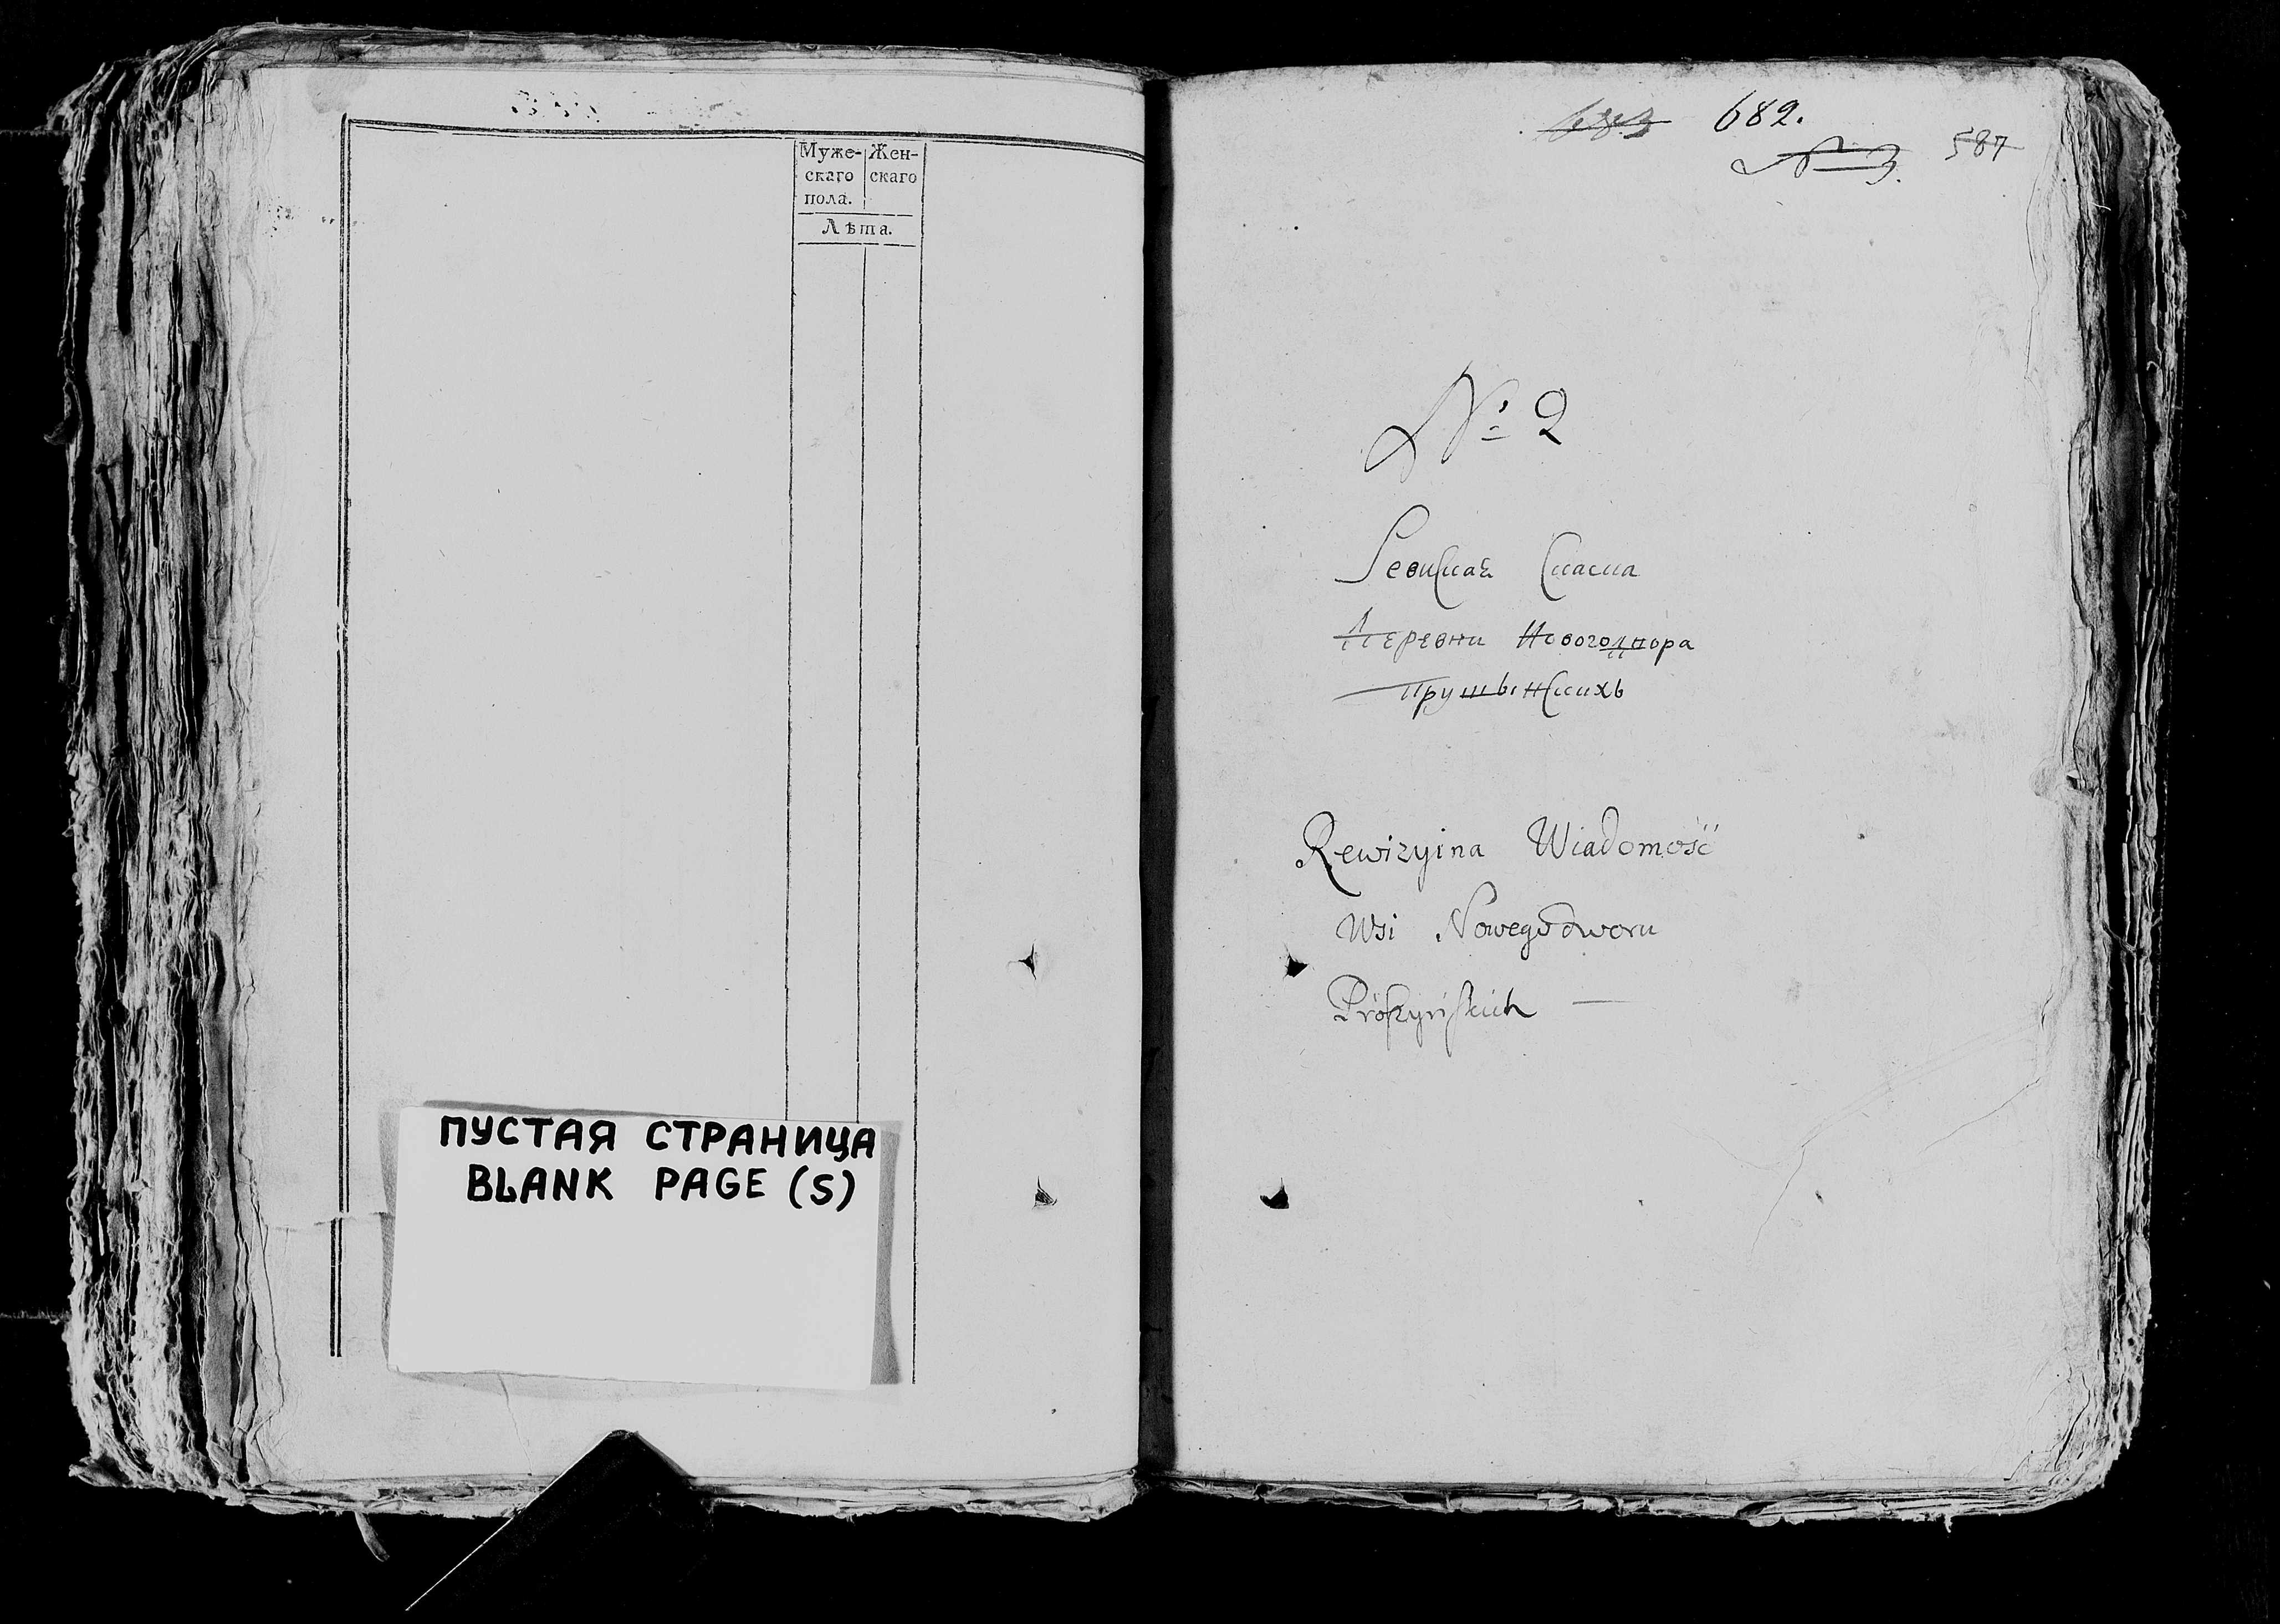 Муже- Жен-
скаго скаго
пола.
Лѣта.
ПУСТАЯ СТРАНИЦА
BLANK PAGE (S)
682.
587
№ 2
Ревиская Скаска
Деревни Новогодвора
Прушынскихъ
Rewizyina Wiadomość
Wsi Nowegodworu
Prószyńskich —